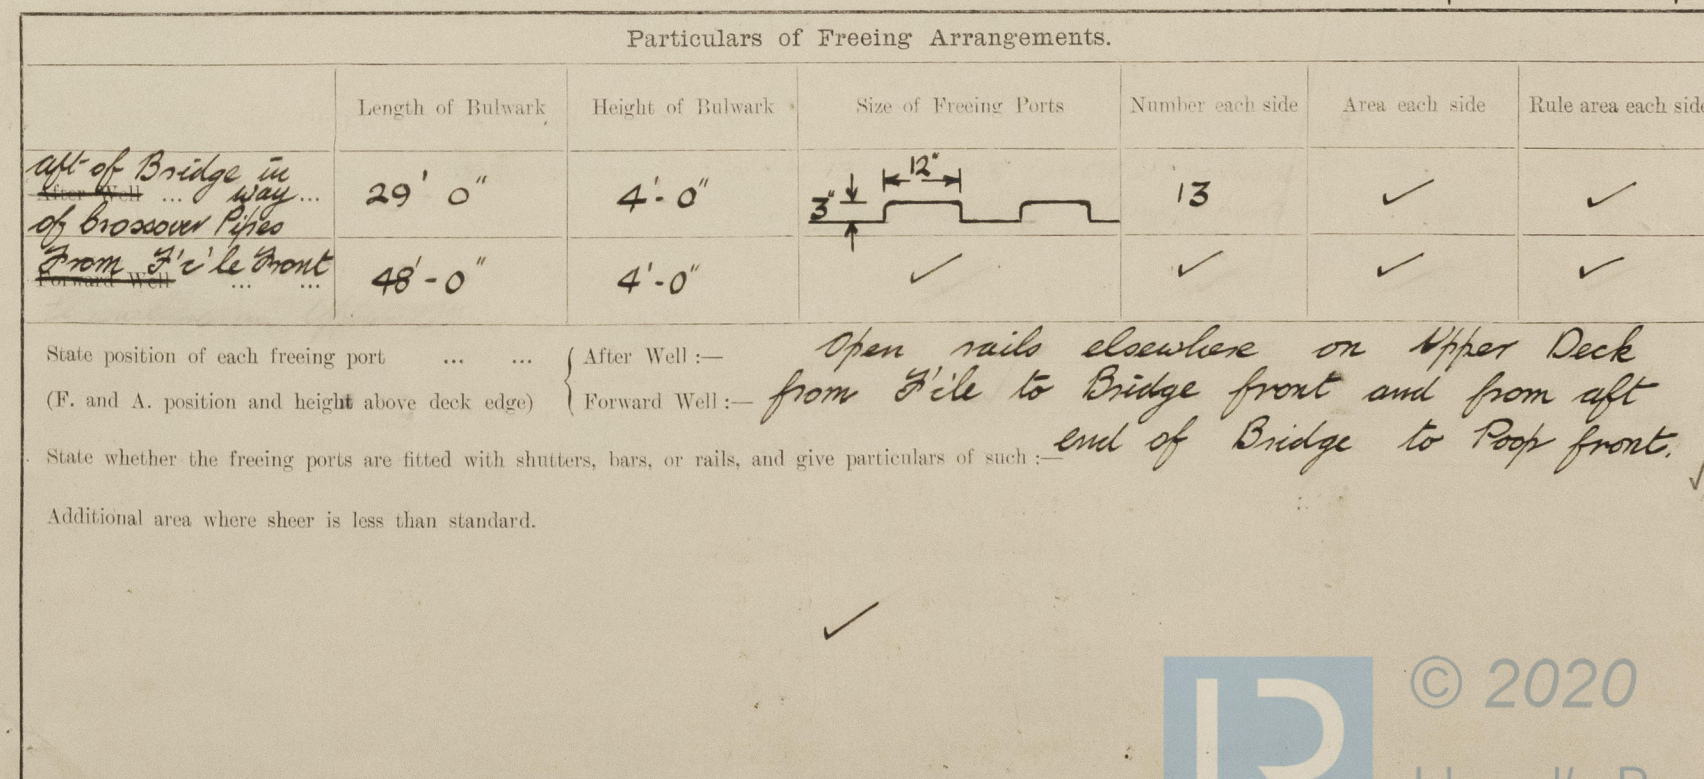 Particulars of Freeing Arrangements.
Length of Bulwark Height of Bulwark Size of Freeing Ports Number each side Area each side Rule area each side
aft of Bridge in
After Well ... way ...
of Crossover Pipes
29' 0" 4'-0" 3" 12" 13 ✓ ✓
From F'c'le Front
Forward Well ... ...
48'-0" 4'-0" ✓ ✓ ✓ ✓
State position of each freeing port ... ... After Well :— Open rails elsewhere on Upper Deck
(F. and A. position and height above deck edge) Forward Well :— from F'c'le to Bridge front and from aft
end of Bridge to Poop front.
State whether the freeing ports are fitted with shutters, bars, or rails, and give particulars of such :—
Additional area where sheer is less than standard.
✓
© 2020